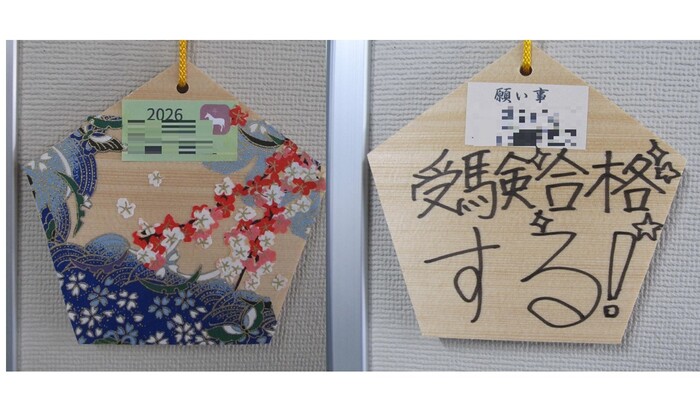 2026
願い事
受験合格
する!